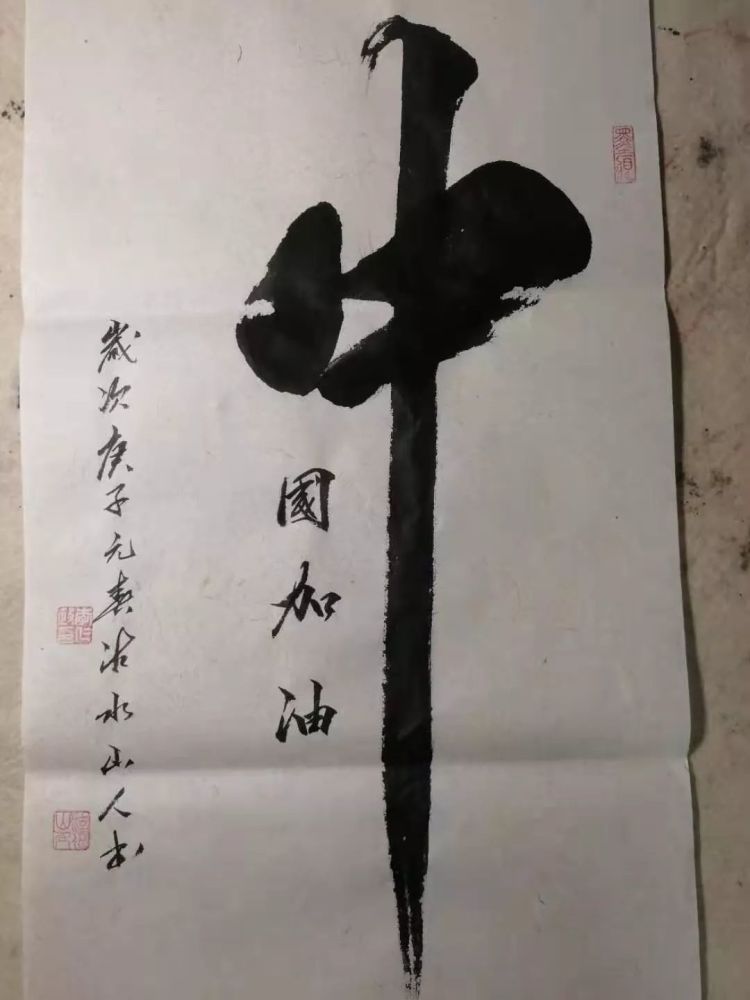 中
國加油
歲次庚子元春沽水山人书